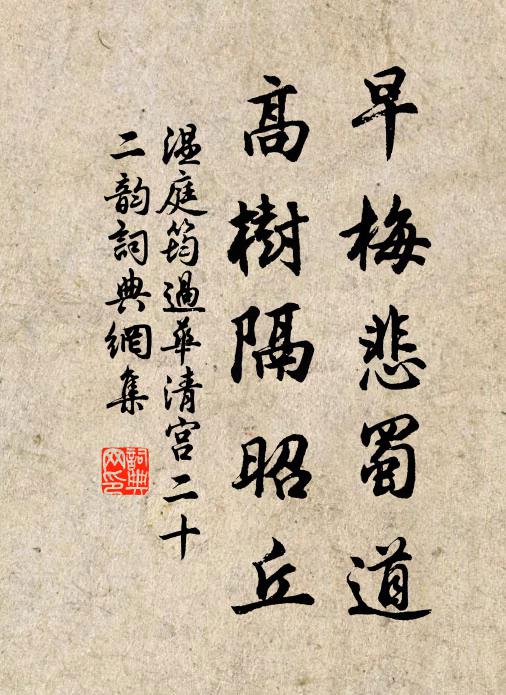 早梅悲蜀道
高樹隔昭丘
溫庭筠過華清宮二十
二韵詞典網集
詞典
网印